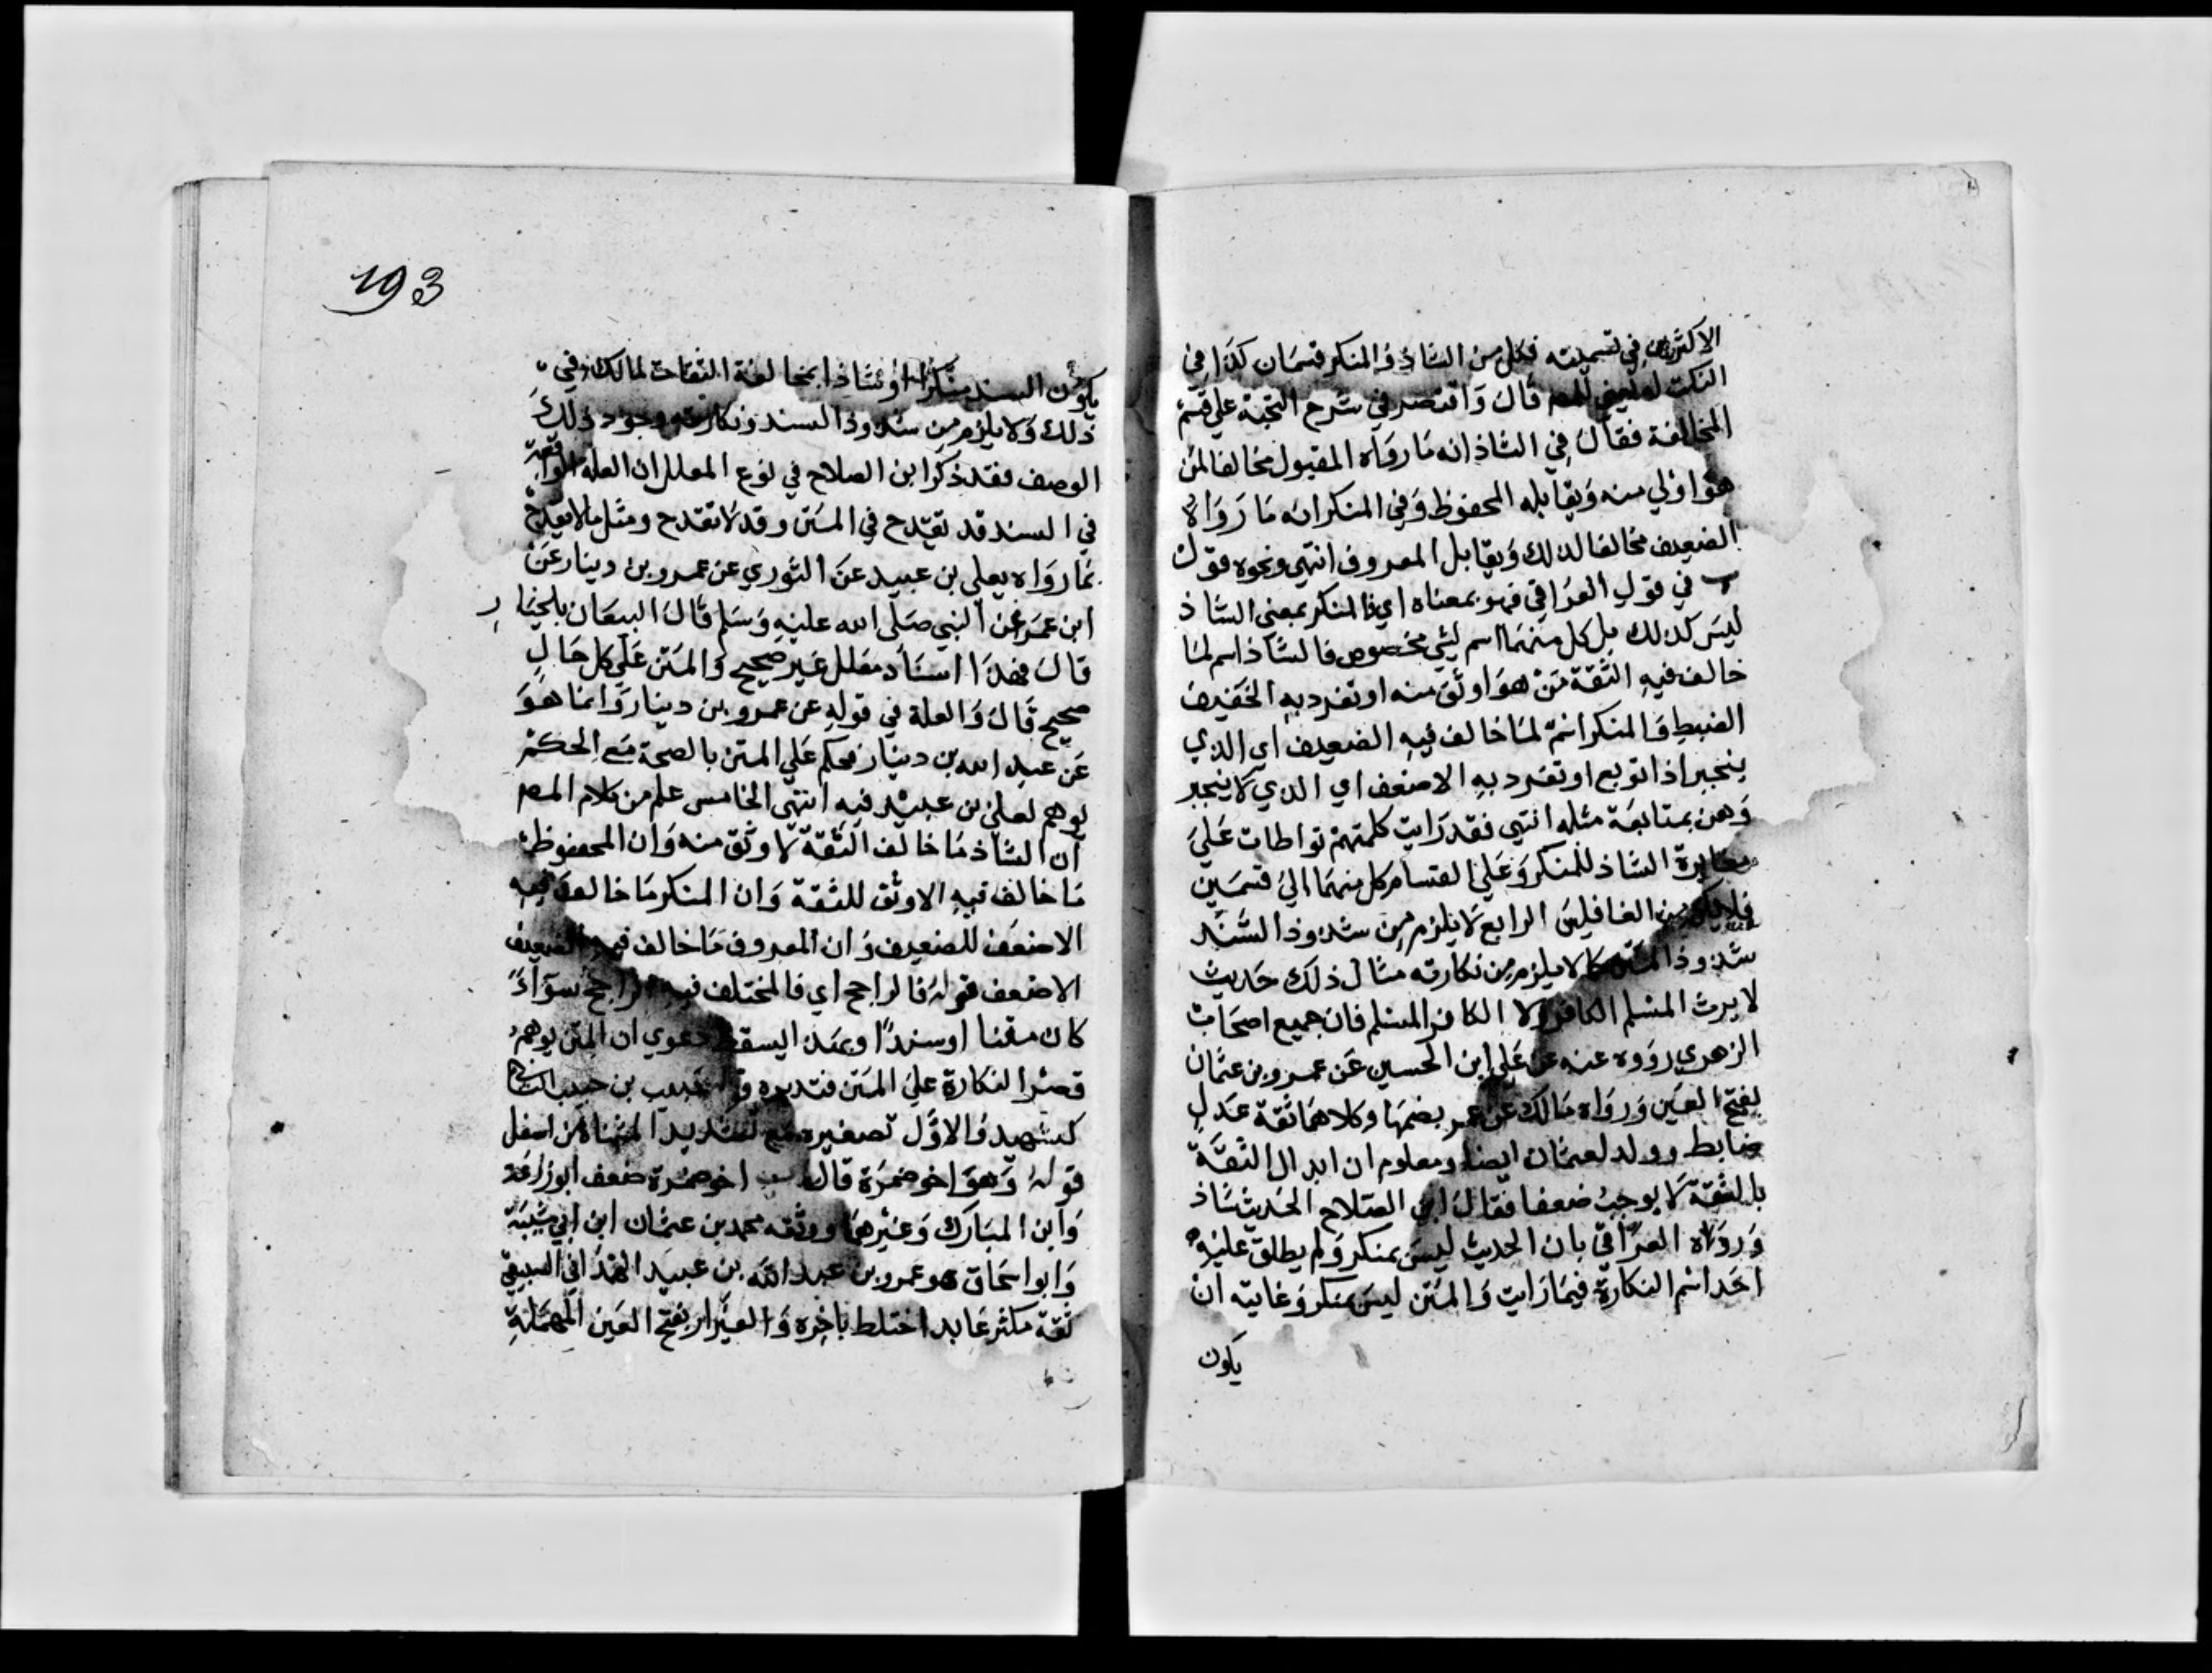 الاكثرين في تسميته فكل من الشاذ والمنكر قسمان كذا في
النكت لمولفي للمص قال واقتصر في شرح النخبة علي قسم
المخالفة فقال في الشاذ انه ما رواه المقبول مخالفا لمن
هو اولي منه ويقابله المحفوظ وفي المنكر انه ما رواه
الضعيف مخالفا لذلك ويقابل المعروف انتهي ونحوه قول
في قول العراقي فهو بمعناه اي فالمنكر بمعني الشاذ
ليس كذلك بل كل منهما اسم لشي مخصوص فالشاذ اسم لما
خالف فيه الثقة من هو اوثق منه او تفرد به الخفيف
الضبط والمنكر اسم لما خالف فيه الضعيف اي الذي
ينجبر اذا توبع او تفرد به الاضعف اي الذي لا ينجبر
وهن بمتابعة مثله انتهي فقد رايت كلمتهم تواطات علي
مغايرة الشاذ للمنكر وعلي انقسام كل منهما الي قسمين
فلا تكن من الغافلين الرابع لا يلزم من شذوذ السند
شذوذ المتن كما لا يلزم من نكارته مثال ذلك حديث
لا يرث المسلم الكافر ولا الكافر المسلم فان جميع اصحاب
الزهري رووه عنه عن علي ابن الحسين عن عمرو بن عثمان
بفتح العين ورواه مالك عن عمر بضمها وكلاهما ثقة عدل
ضابط وولد لعثمان ايضا ومعلوم ان ابدال الثقة
بالثقة لا يوجب ضعفا فقال ابن الصلاح الحديث شاذ
ورواه العراقي بان الحديث ليس بمنكر ولم يطلق عليه
احد اسم النكارة فيما رايت والمتن ليس بمنكر وغايته ان
يكون
193
يكون السند منكرا او شاذا بمخالفة الثقات لمالك في
ذلك ولا يلزم من شذوذ السند ونكارته وجود ذلك
الوصف فقد ذكر ابن الصلاح في نوع المعلل ان العلة الواقعة
في السند قد تقدح في المتن وقد لا تقدح ومثل ما لا يقدح
بما رواه يعلي بن عبيد عن الثوري عن عمرو بن دينار عن
ابن عمر عن النبي صلي الله عليه وسلم قال البيعان بالخيار
قال فهذا اسناد معلل غير صحيح والمتن علي كل حال
صحيح قال والعلة في قوله عن عمرو بن دينار وانما هو
عن عبد الله بن دينار فحكم علي المتن بالصحة مع الحكم
بوهم يعلي بن عبيد فيه انتهي الخامس علم من كلام المص
ان الشاذ ما خالف الثقة لاوثق منه وان المحفوظ
ما خالف فيه الاوثق للثقة وان المنكر ما خالف فيه
الاضعف للضعيف وان المعروف ما خالف فيه الضعيف
الاضعف قوله فالراجح اي فالمختلف فيه الراجح سواء
كان متنا او سندا وبهذا يسقط دعوي ان المتن يوهم
قصر النكارة علي المتن فتدبره قوله حبيب بن حبيب
كشهيد والاول تصغيره مع تشديد المثناة من اسفل
قوله وهو اخو حمزة قال اخو حمزة ضعف ابو زرعة
وابن المبارك وغيرهما ووثقه محمد بن عثمان ابن ابي شيبة
وابو اسحاق هو عمرو بن عبد الله بن عبيد الهمداني السبيعي
ثقة مكثر عابد اختلط باخره والعيزار بفتح العين المهملة